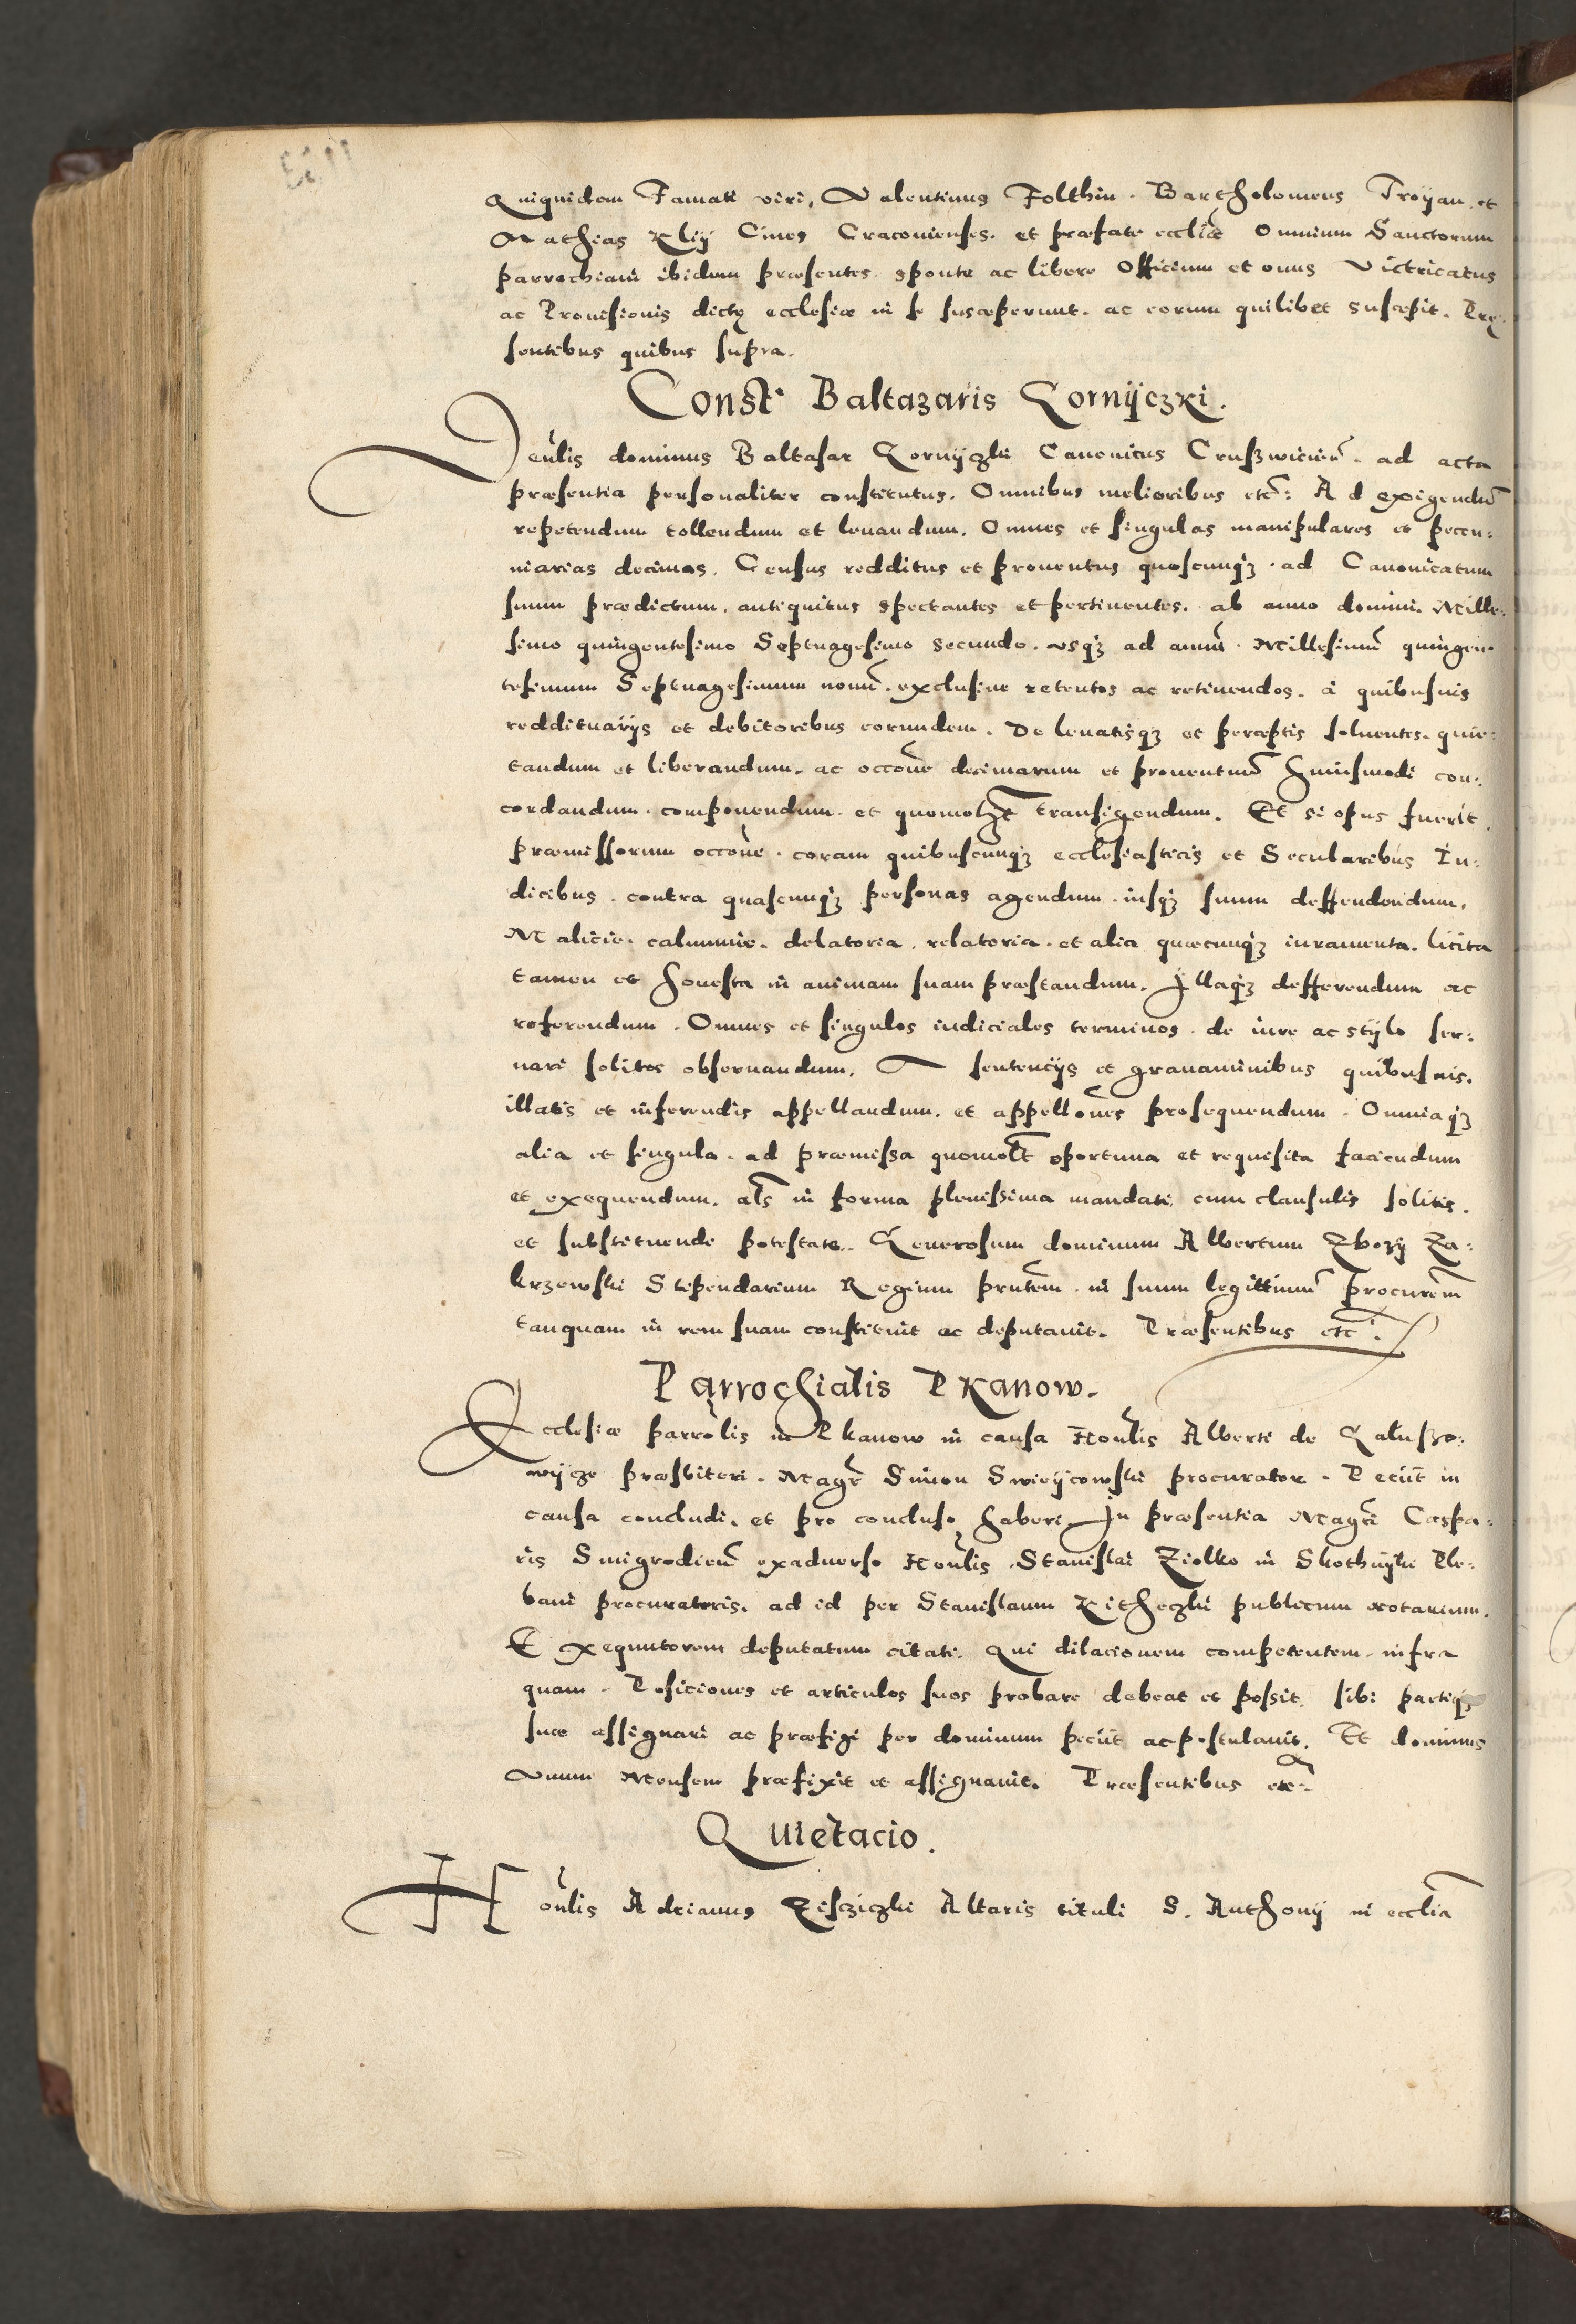 Quiquidem Famati viri, Valentinus Folthin. Bartholomeus Troyan. et
Mathias Klij Ciues Cracouienses. et præfate eccliæ Omnium Sanctorum
parrochiani ibidem præsentes. sponte ac libere Officium et onus Victricatus
ac Prouisionis dictę ecclesiæ in se susceperunt. ac eorum quilibet suscepit. Prę
sentibus quibus supra.
Const. Baltazaris Gornijczki.
Venlis dominus Baltasar Gornijczki Canonicus Cruszwicien̄. ad acta
præsentia personaliter constitutus. Omnibus melioribus etc: Ad exigendū
repetendum tollendum et leuandum. Omnes et singulas manipulares et pecu:
niarias decimas. Census redditus et prouentus quoscunqȝ. ad Canonicatum
suum prædictum. antiquitus spectantes et pertinentes. ab anno domini. Mille:
simo quingentesimo Septuagesimo secundo. vsqȝ ad annū. Millesimū quingen
tesimum Septuagesimum nonū. exclusiue retentos ac retinendos. à quibusuis
reddituarijs et debitoribus eorundem. De leuatisqȝ et perceptis soluentes. quie:
tandum et liberandum. ac occoñe decimarum et prouentuū huiusmodi con:
cordandum. componendum. et quomolȝt transigendum. Et si opus fuerit.
præmissorum occoñe. coram quibuscunqȝ ecclesiasticis et Secularibus Iu:
dicibus. contra quascunqȝ personas agendum. iusqȝ suum deffendendum.
Malicie. calumnie. delatoria. relatoria. et alia quæcunqȝ iuramenta. licita
tamen et honesta in animam suam præstandum. Illaqȝ defferendum ac
referendum. Omnes et singulos iudiciales terminos. de iure ac stijlo ser:
uari solitos obseruandum. A sentencijs et grauaminibus quibusuis.
illatis et inferendis appellandum. et appelloñes prosequendum. Omniaqȝ
alia et singula. ad præmissa quomolt̄ oportuna et requisita faciendum
et exequendum. als̄ in forma plenissima mandati. cum clausulis solitis.
et substituendi potestate. Generosum dominum Albertum Zbozÿ Za:
krzewski Stipendarium Regium prñtem. in suum legittimū procurēm
tanquam in rem suam constituit ac deputauit. Præsentibus etc:
Parrochialis Pkanow.
Ecclesiæ parrolis in Pkanow in causa Honlis Alberti de Galuszo:
wijcze præsbiteri. Magr̄ Simon Swieijcowski procurator. Peciit in
causa concludi. et pro concluso haberi. In præsentia Magri Caspa:
ris Smigrodien̄ exaduerso Honlis. Stanislai Ziolko in Skothnijki Ple:
bani procuratoris. ad id per Stanislaum Kitheczki publicum notarium.
Exequutorem deputatum citati. Qui dilacionem competentem. infra
quam. Posiciones et articulos suos probare debeat et possit. sibi partiqȝ
suæ assignari ac præfigi per dominum peciit ac postulauit. Et dominus
Vnum Mensem præfixit et assignauit. Præsentibus etc:
Quietacio.
Honlis Adrianus Altaris tituli S. Anthonij in ecclia